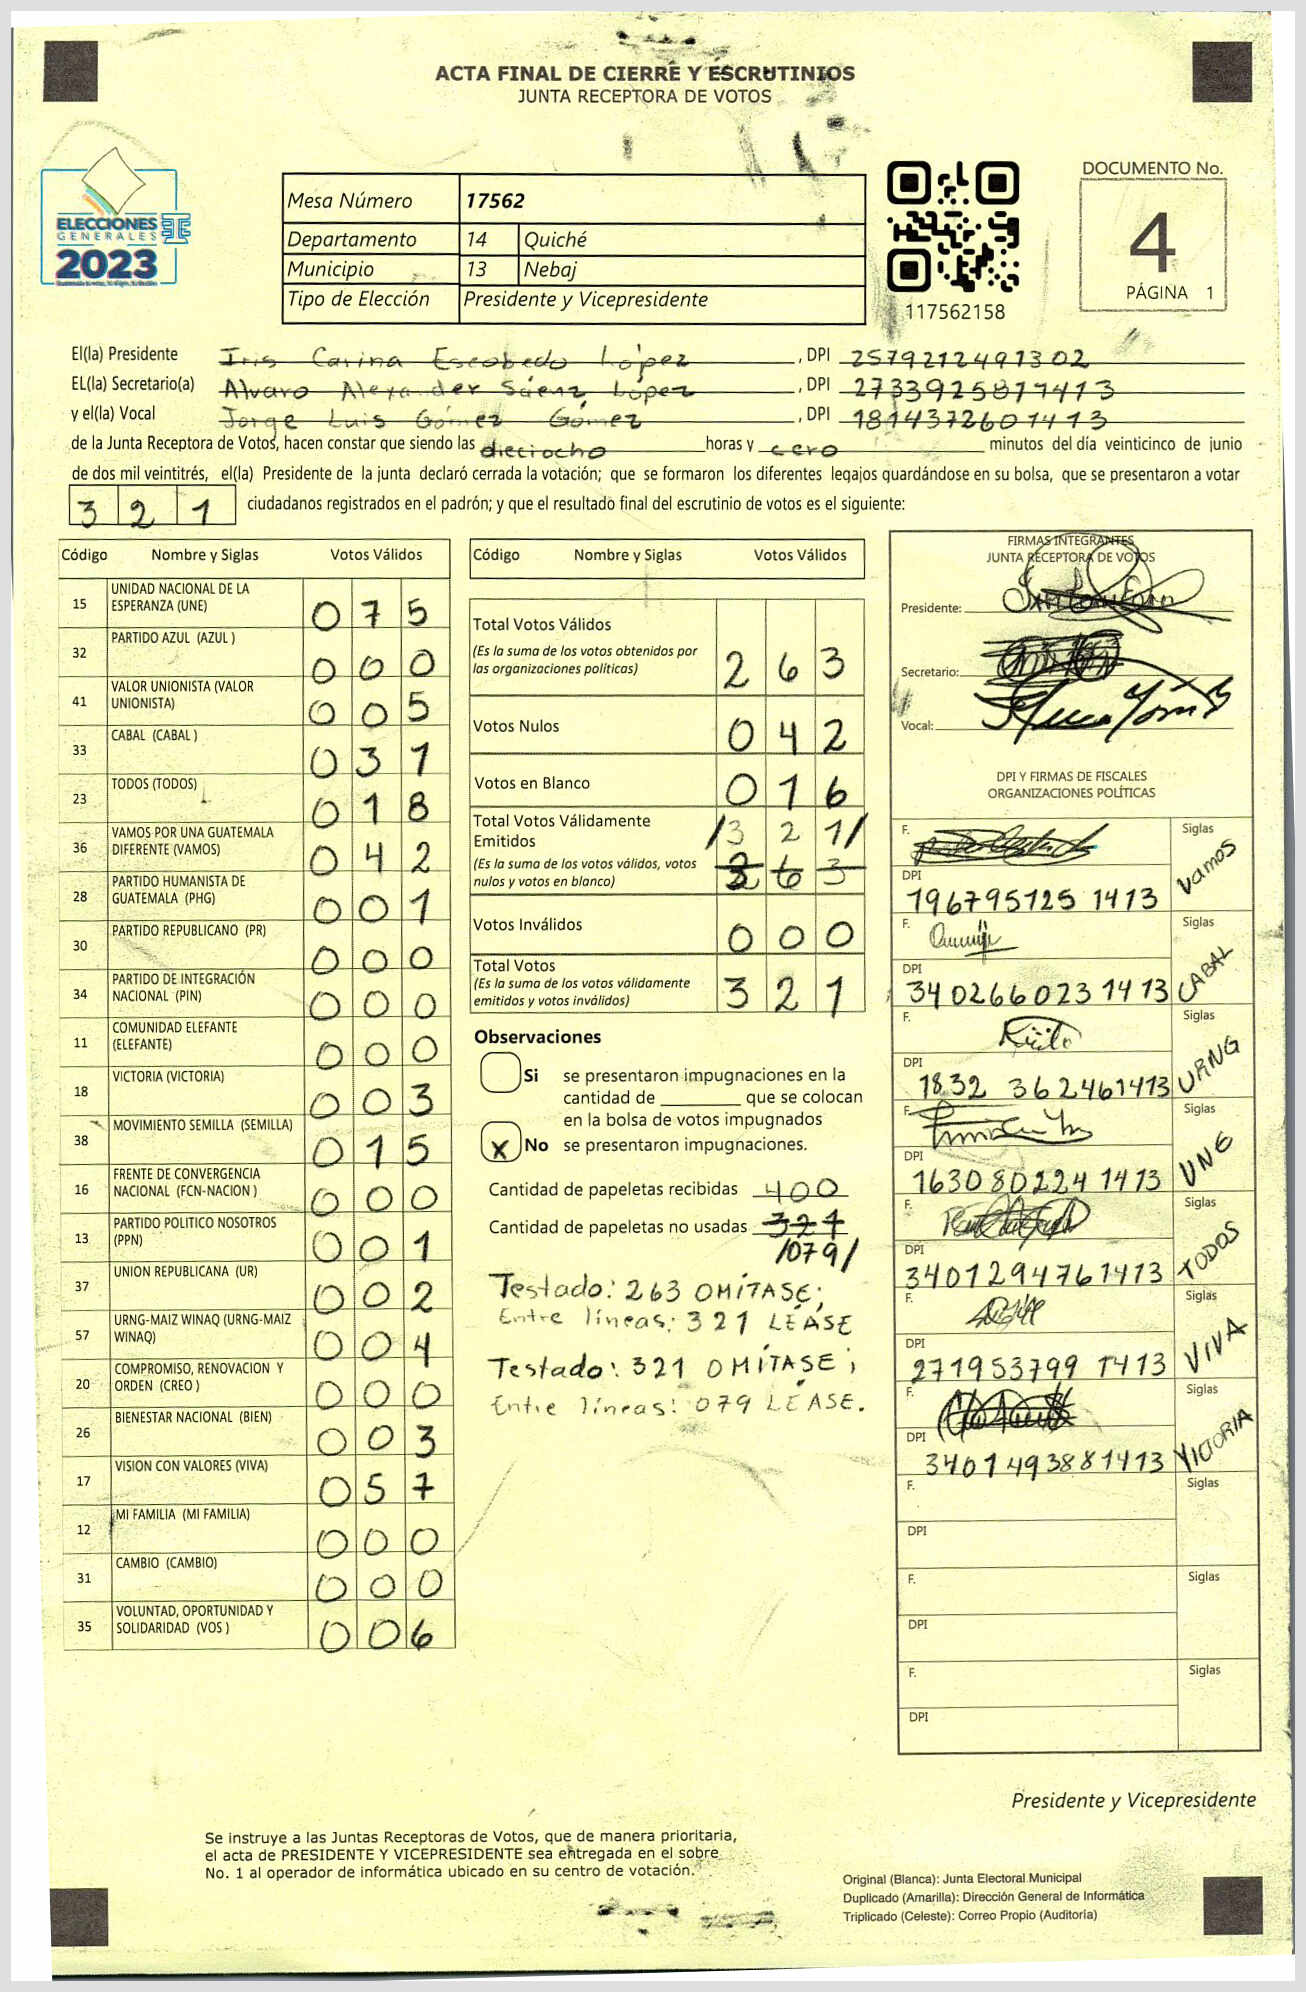 ACTA FINAL DE CIERRE Y ESCRUTINIOS
JUNTA RECEPTORA DE VOTOS
ELECCIONES
GENERALES
2023
Mesa Número 17562
Departamento 14 Quiché
Municipio 13 Nebaj
Tipo de Elección Presidente y Vicepresidente
117562158
DOCUMENTO No.
4
PÁGINA 1
El(la) Presidente Iris Carina Escobedo López , DPI 2579212491302
EL(la) Secretario(a) Alvaro Alexander Sáenz López , DPI 2733925871413
y el(la) Vocal Jorge Luis Gómez Gómez , DPI 1814372601413
de la Junta Receptora de Votos, hacen constar que siendo las dieciocho horas y cero minutos del día veinticinco de junio
de dos mil veintitrés, el(la) Presidente de la junta declaró cerrada la votación; que se formaron los diferentes legajos guardándose en su bolsa, que se presentaron a votar
3 2 1 ciudadanos registrados en el padrón; y que el resultado final del escrutinio de votos es el siguiente:
Código Nombre y Siglas Votos Válidos
15 UNIDAD NACIONAL DE LA
ESPERANZA (UNE) 0 7 5
32 PARTIDO AZUL (AZUL ) 0 0 0
41 VALOR UNIONISTA (VALOR
UNIONISTA) 0 0 5
33 CABAL (CABAL ) 0 3 1
23 TODOS (TODOS) 0 1 8
36 VAMOS POR UNA GUATEMALA
DIFERENTE (VAMOS) 0 4 2
28 PARTIDO HUMANISTA DE
GUATEMALA (PHG) 0 0 1
30 PARTIDO REPUBLICANO (PR) 0 0 0
34 PARTIDO DE INTEGRACIÓN
NACIONAL (PIN) 0 0 0
11 COMUNIDAD ELEFANTE
(ELEFANTE) 0 0 0
18 VICTORIA (VICTORIA) 0 0 3
38 MOVIMIENTO SEMILLA (SEMILLA) 0 1 5
16 FRENTE DE CONVERGENCIA
NACIONAL (FCN-NACION ) 0 0 0
13 PARTIDO POLITICO NOSOTROS
(PPN) 0 0 1
37 UNION REPUBLICANA (UR) 0 0 2
57 URNG-MAIZ WINAQ (URNG-MAIZ
WINAQ) 0 0 4
20 COMPROMISO, RENOVACION Y
ORDEN (CREO ) 0 0 0
26 BIENESTAR NACIONAL (BIEN) 0 0 3
17 VISION CON VALORES (VIVA) 0 5 7
12 MI FAMILIA (MI FAMILIA) 0 0 0
31 CAMBIO (CAMBIO) 0 0 0
35 VOLUNTAD, OPORTUNIDAD Y
SOLIDARIDAD (VOS ) 0 0 6
Código Nombre y Siglas Votos Válidos
Total Votos Válidos
(Es la suma de los votos obtenidos por
las organizaciones políticas) 2 6 3
Votos Nulos 0 4 2
Votos en Blanco 0 1 6
Total Votos Válidamente
Emitidos /3 2 1/
(Es la suma de los votos válidos, votos
nulos y votos en blanco) 2 6 3
Votos Inválidos 0 0 0
Total Votos
(Es la suma de los votos válidamente
emitidos y votos inválidos) 3 2 1
Observaciones
Si se presentaron impugnaciones en la
cantidad de ________ que se colocan
en la bolsa de votos impugnados
x No se presentaron impugnaciones.
Cantidad de papeletas recibidas 400
Cantidad de papeletas no usadas 321
/079/
Testado: 263 OMÍTASE;
Entre líneas: 321 LÉASE
Testado: 321 OMÍTASE;
Entre líneas: 079 LÉASE.
FIRMAS INTEGRANTES
JUNTA RECEPTORA DE VOTOS
Presidente:
Secretario:
Vocal:
DPI Y FIRMAS DE FISCALES
ORGANIZACIONES POLÍTICAS
F. Siglas
DPI 196795125 1413 Vamos
F. Siglas
DPI 340266023 1413 CABAL
F. Siglas
DPI 1832 362461413 URNG
F. Siglas
DPI 163080224 1413 UNE
F. Siglas
DPI 3401294761413 TODOS
F. Siglas
DPI 271953799 1413 VIVA
F. Siglas
DPI 3401493881413 VICTORIA
F. Siglas
DPI
F. Siglas
DPI
F. Siglas
DPI
Presidente y Vicepresidente
Se instruye a las Juntas Receptoras de Votos, que de manera prioritaria,
el acta de PRESIDENTE Y VICEPRESIDENTE sea entregada en el sobre
No. 1 al operador de informática ubicado en su centro de votación.
Original (Blanca): Junta Electoral Municipal
Duplicado (Amarilla): Dirección General de Informática
Triplicado (Celeste): Correo Propio (Auditoría)